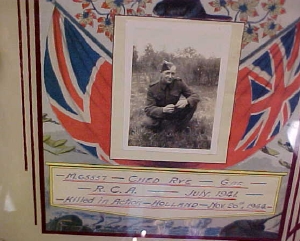 — CHED RYE — GNR —
— R.C.A. — JULY 1941
— Killed in Action — HOLLAND — Nov 20th, 1944 —